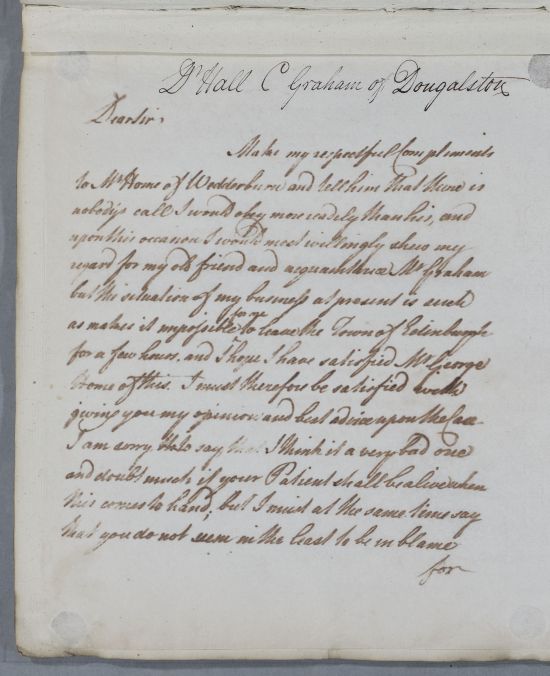 Dr Hall C Graham of Dougalston
Dear sir,
Make my respectful Compliments
to Mr Home of Wedderburn and tell him that there is
nobodys call I would obey more readily than his, and
upon this occasion I would most willingly shew my
regard for my old friend and acquaintance Mr Graham
but the situation of my business at present is such
as makes it impossible for me to leave the Town of Edinburgh
for a few hours. and I hope I have satisfied Mr George
Home of this. I must therefore be satisfied with
giving you my opinion and best advice upon the Case
I am sorry to say that I think it a very bad one
and doubt much if your Patient shall be alive when
this comes to hand, but I must at the same time say
that you do not seem in the least to be in blame
for